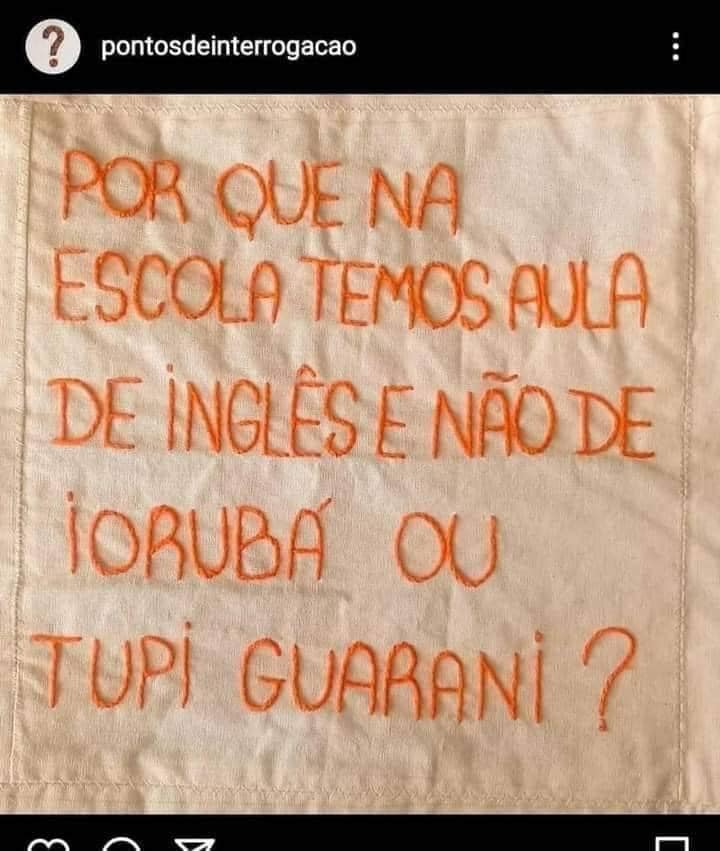 pontosdeinterrogacao
POR QUE NA
ESCOLA TEMOS AULA
DE INGLÊS E NÃO DE
IORUBÁ OU
TUPI GUARANI ?